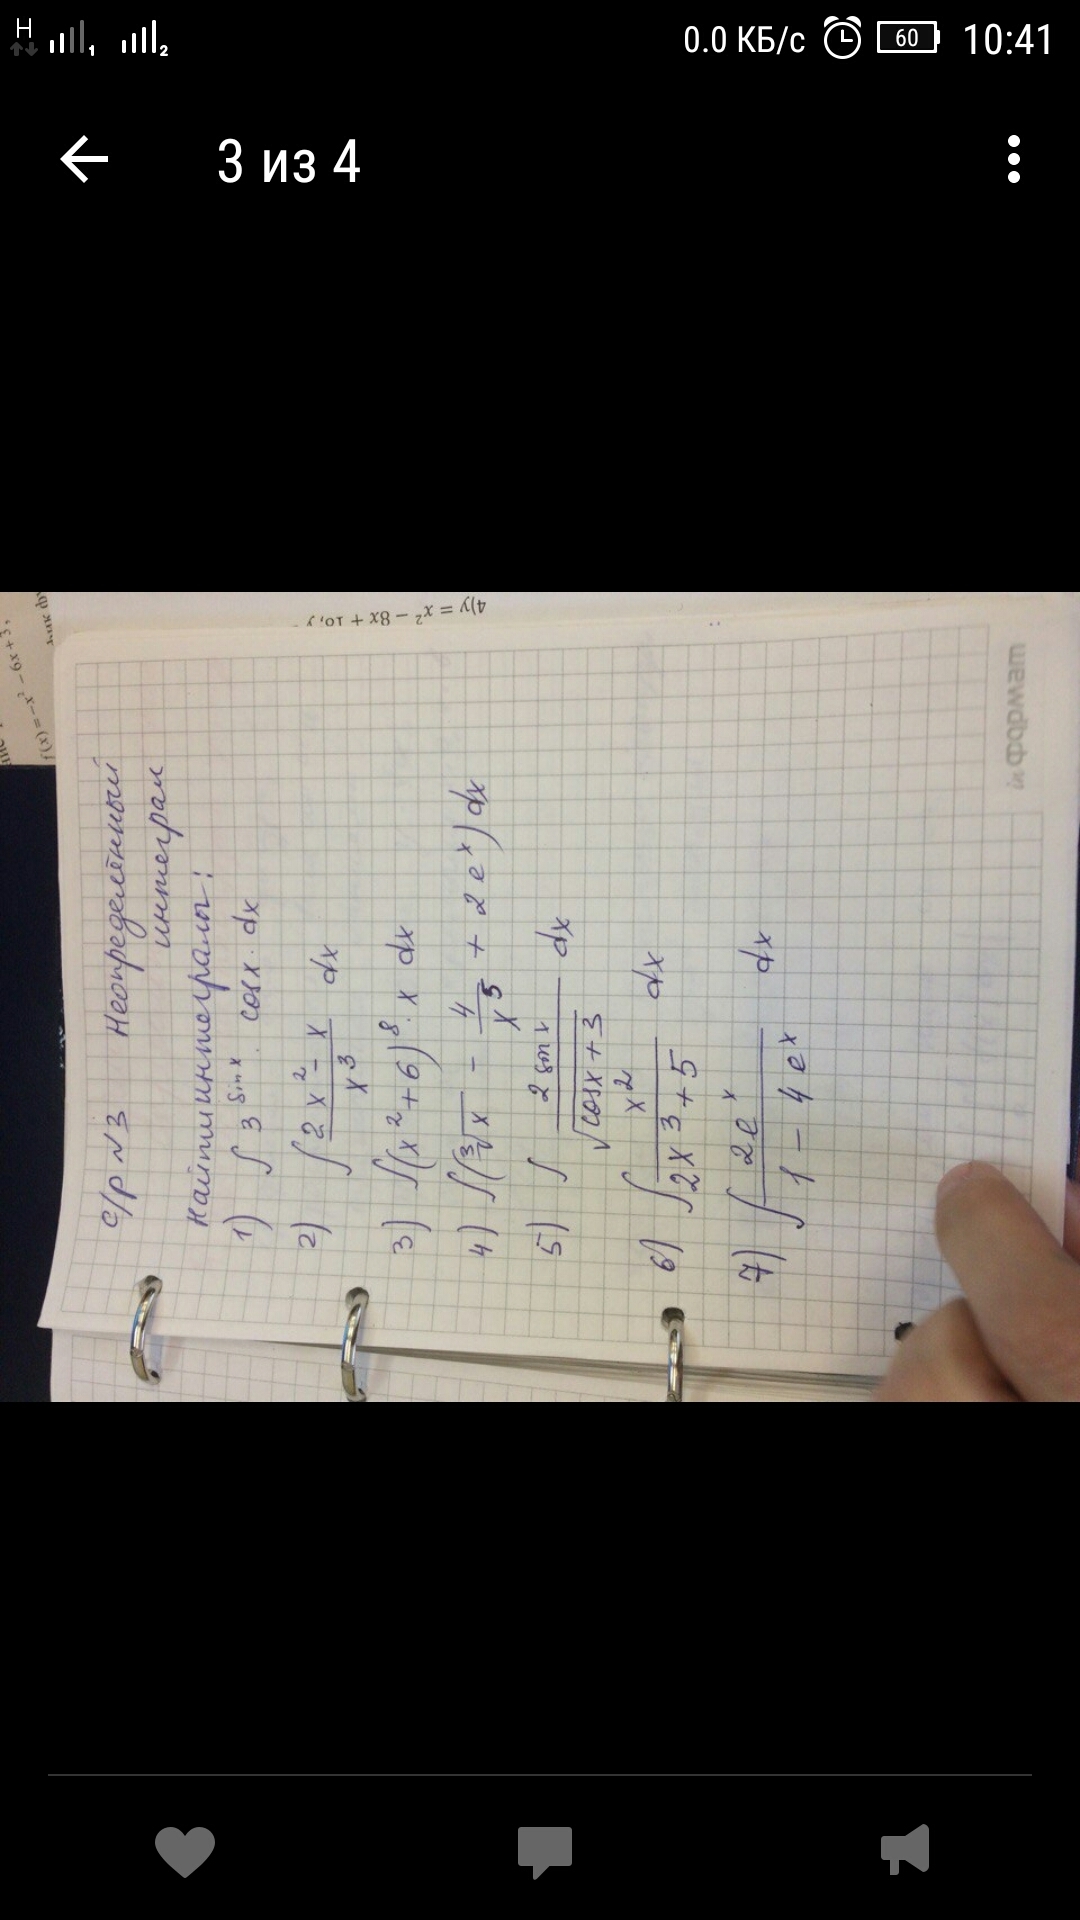 H 1 2 0.0 КБ/с 60 10:41
3 из 4
4) y = x² − 8x + 10, y
f(x) = −x² − 6x + 3,
с/р №3 Неопределённый
интеграл
Найти интегралы:
1) ∫ 3^sin x · cosx · dx
2) ∫ (2x² − x)/x³ dx
3) ∫(x² + 6)⁸ · x dx
4) ∫(³√x − 4/x⁵ + 2e^x) dx
5) ∫ 2 sin x/√(cosx + 3) dx
6) ∫ x²/(2x3 + 5) dx
7) ∫ 2e^x/(1 − 4e^x) dx
in формат